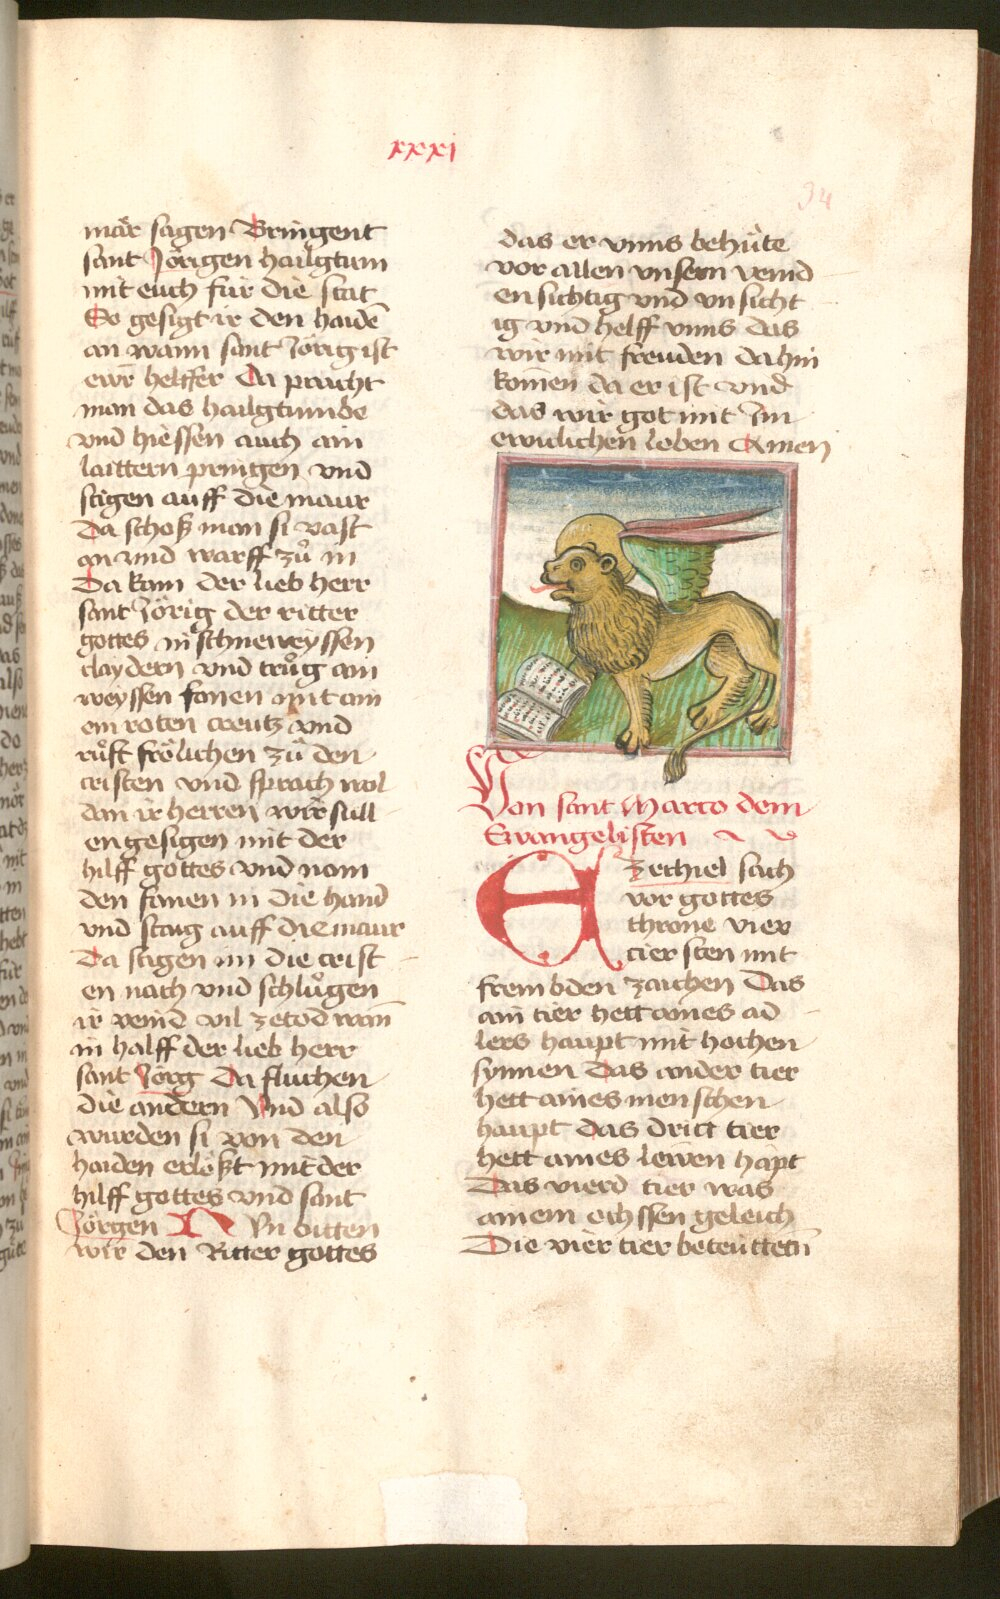 xxxi
34
mär sagen Bringent
sant Jörigen hailgtum
mit euch für die stat
So gesigt ir den haidē
an wann sant Jörig ist
ewr̄ helffer Da pracht
man das hailgtumbe
vnd hiessen auch ain
laittern pringen vnd
stigen auff die maur
Da schoß man si vast
an vnd warff zů in
Da kam der lieb herr
sant Jörig der ritter
gottes in schneweyssen
claydern vnd trůg ain
weyssen fanen mit ain
em roten creutz vnd
růft frölichen zů den
cristen vnd sprach wol
dan ir herren wir süll
en gesigen mit der
hilff gottes vnd nam
den fanen in die hand
vnd staig auff die maur
Da stigen im die crist
en nach vnd schlůgen
ir veind vil ze tod wañ
in halff der lieb herr
sant Jörg Da fluchen
die andern Vnd also
wurden si von den
haiden erlößt mit der
hilff gottes vnd sant
Jörgen Nvn bitten
wir den Ritter gottes
das er vnns behüte
vor allen vnsern veind
en sichtig vnd vnsicht
ig vnd helff vnns das
wir mit freuden dahin
komen da er ist vnd
das wir got mit Im
ewiclichen loben Amen
Von sant Marco dem
Evangelisten
Ezechiel sach
vor gottes
throne vier
tier sten mit
frembden zaichen Das
ain tier hett aines ad
lers haupt mit hochen
synnen Das ander tier
hett aines menschen
haupt das dritt tier
hett aines lewen hapt
Das vierd tier was
ainem ochssen geleich
Die vier tier beteütteñ